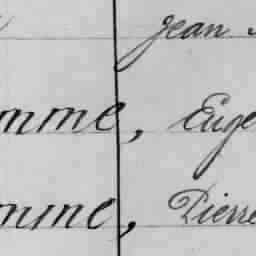 Jean
mme, Euge
mme, Pierre